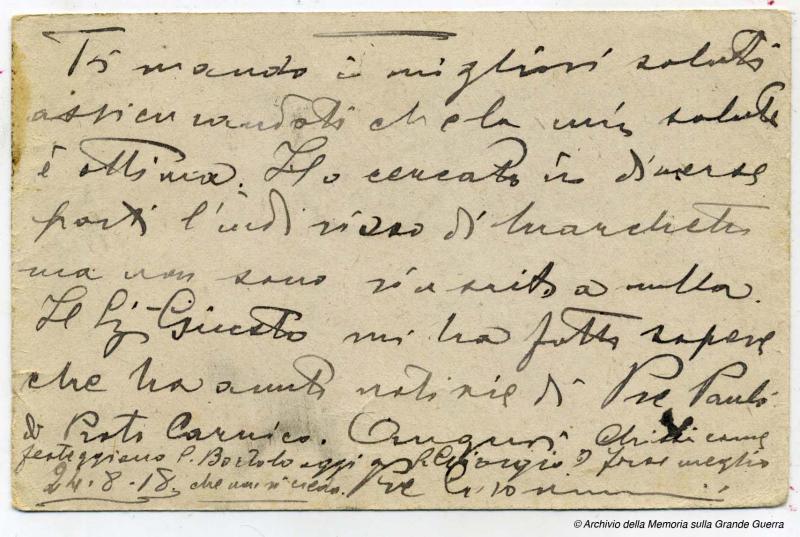 Ti mando i migliori saluti
assicurandoti che la mia salute
è ottima. Ho cercato in diverse
parti l'indirizzo di Marchetti
ma non sono riuscito a nulla.
Il Sig Giusto mi ha fatto sapere
che ha avuto notizie di Pre Paulo
di Prato Carnico. Auguri. Chissà come
festeggiano S. Bortolo oggi a S. Giorgio? forse meglio
24-8-18. che non si creda. Pre
© Archivio della Memoria sulla Grande Guerra